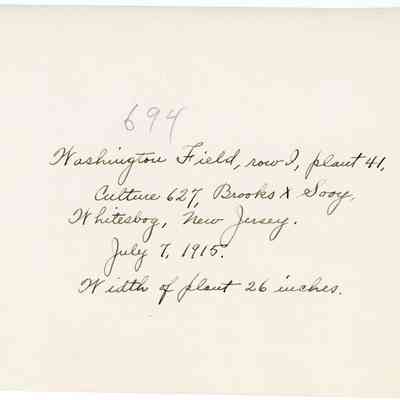 694
Washington Field, row I, plant 41,
Culture 627, Brooks X Sooy,
Whitesbog, New Jersey.
July 7, 1915.
Width of plant 26 inches.